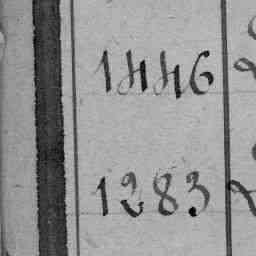 1446
1283